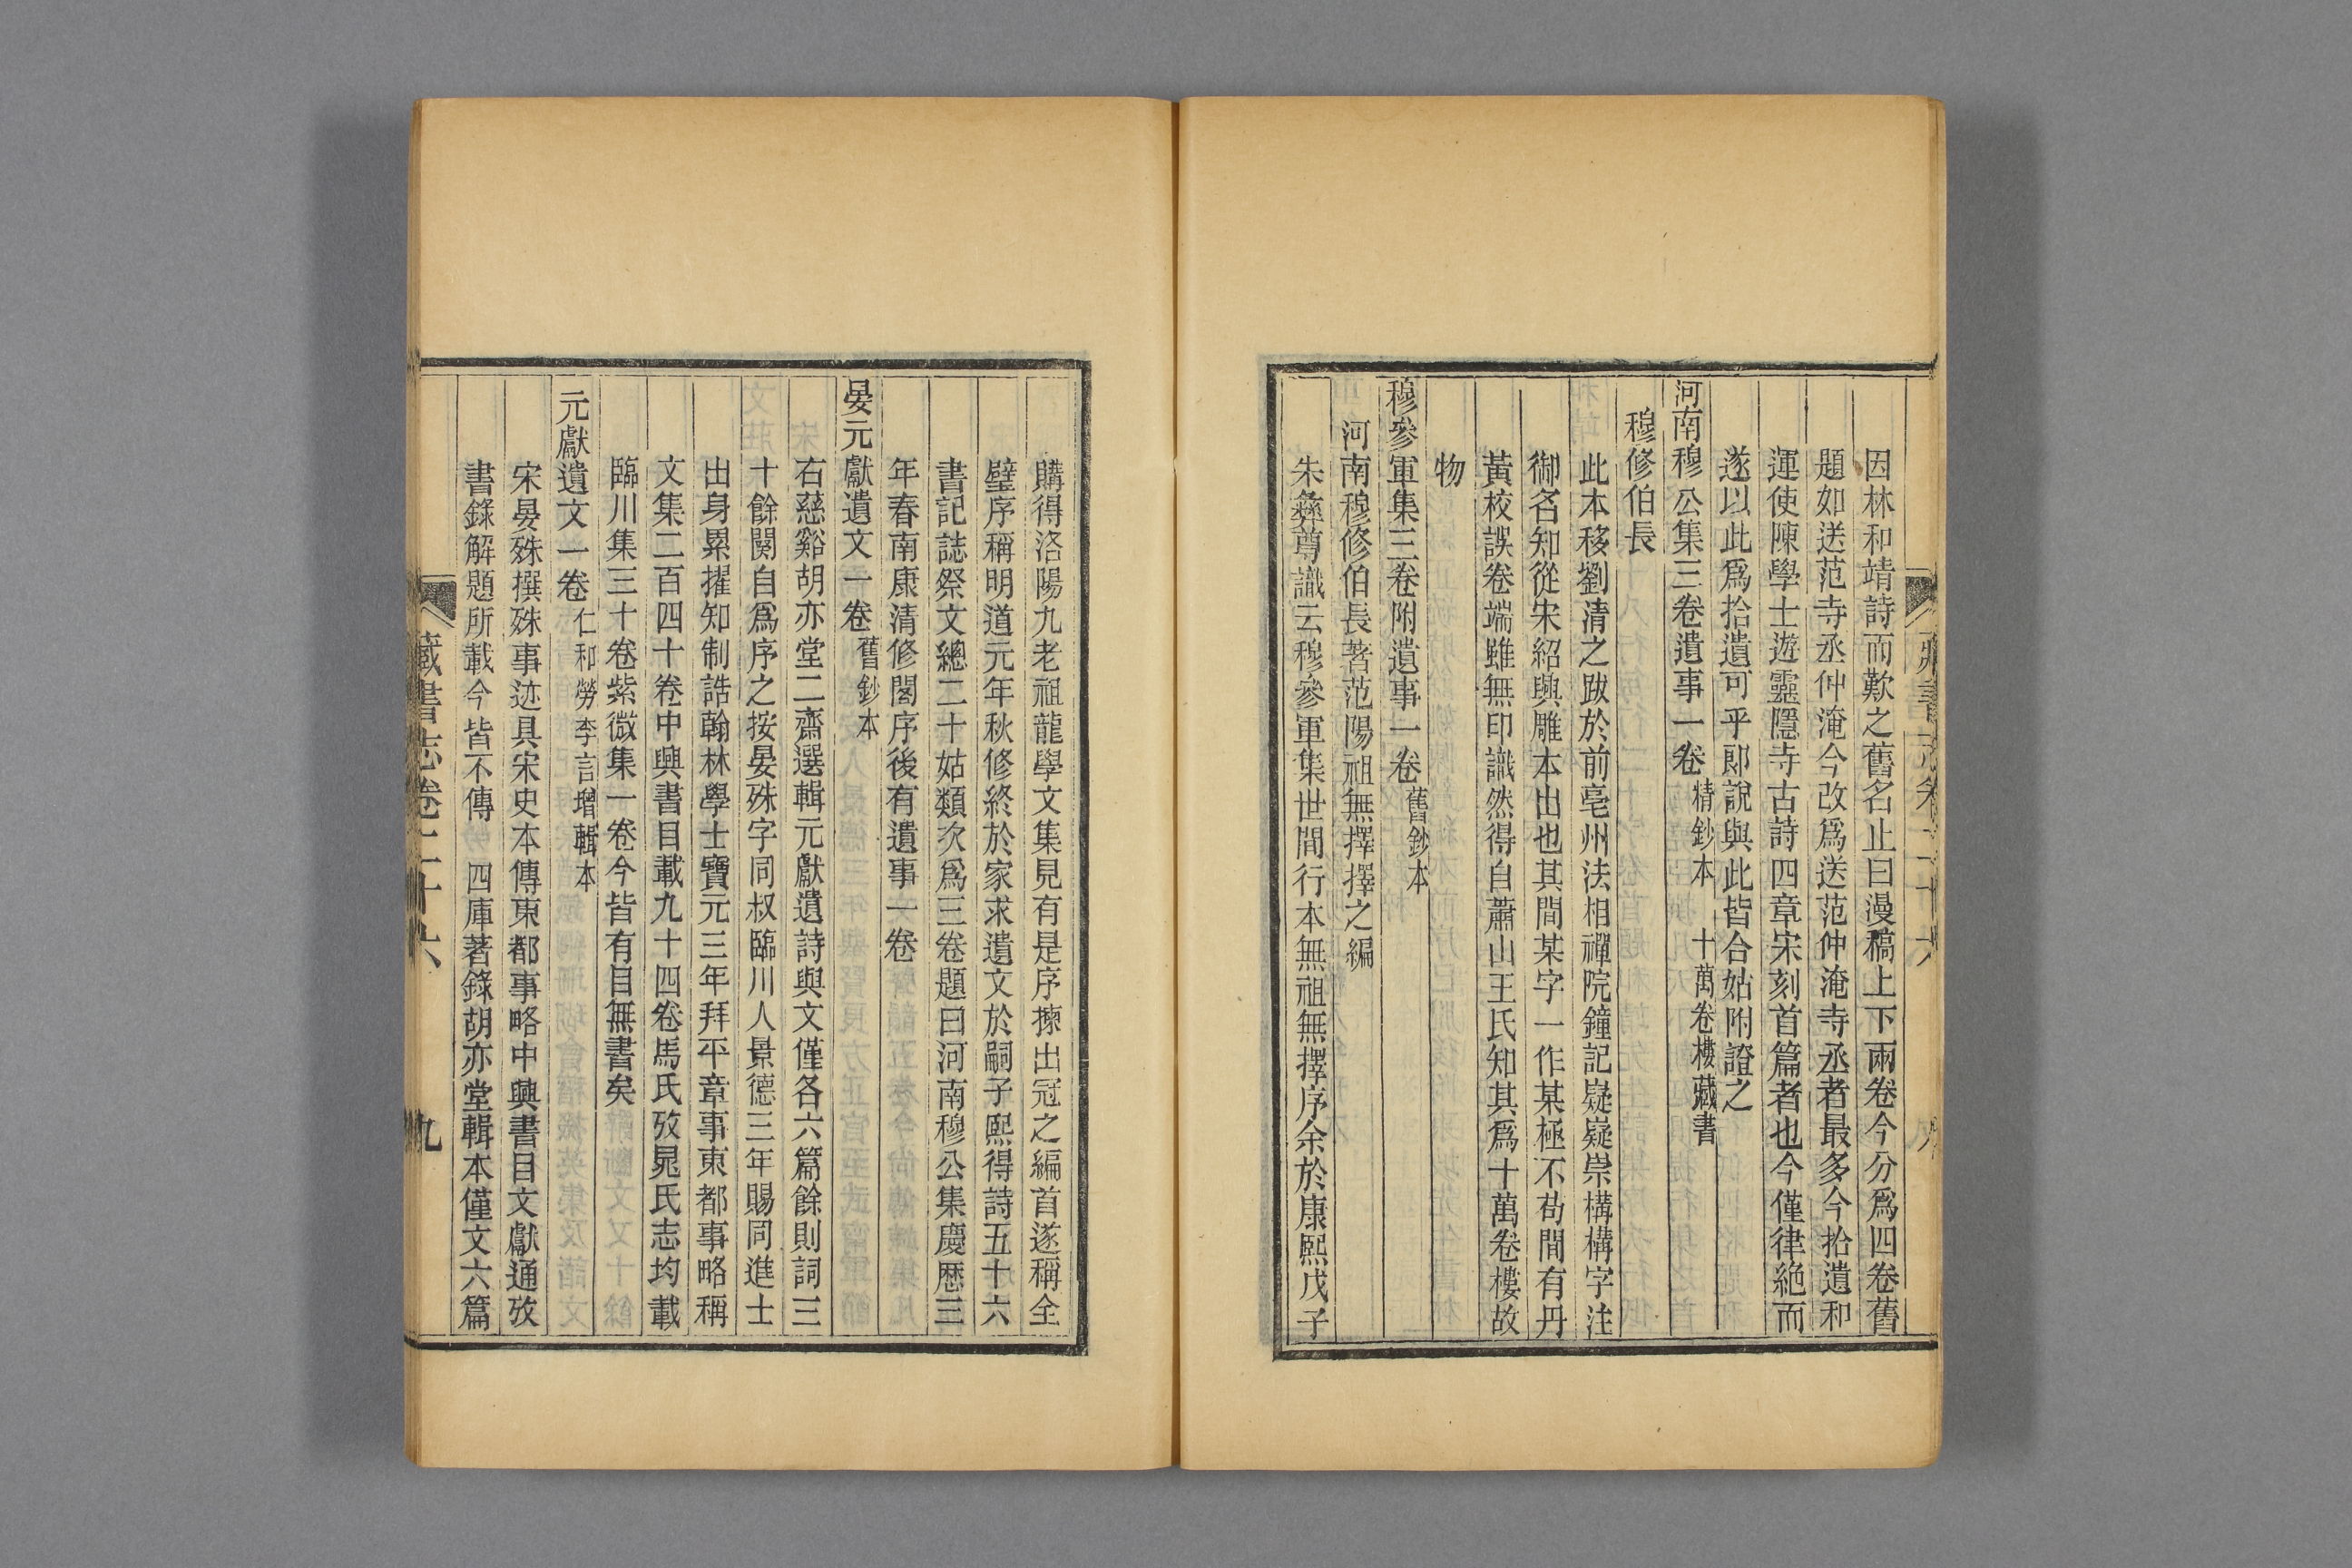 因林和靖詩而歎之舊名止曰漫稿上下兩卷今分爲四卷舊
題如送范寺丞仲淹今改爲送范仲淹寺丞者最多今拾遺和
運使陳學士遊靈隱寺古詩四章宋刻首篇者也今僅律絶而
遂以此爲拾遺可乎郎說與此皆合姑附證之
河南穆公集三卷遺事一卷 精鈔本 十萬卷樓藏書
穆修伯長
此本移劉清之跋於前亳州法相禪院鐘記嶷嶷崇構構字注
御名知從宋紹興雕本出也其間某字一作某極不茍間有丹
黃校誤卷端雖無印識然得自蕭山王氏知其爲十萬卷樓故
物
穆參軍集三卷附遺事一卷 舊鈔本
河南穆修伯長著范陽祖無擇擇之編
朱彝尊識云穆參軍集世間行本無祖無擇序余於康熙戊子
購得洛陽九老祖龍學文集見有是序揀出冠之編首遂稱全
璧序稱明道元年秋修終於家求遺文於嗣子熙得詩五十六
書記誌祭文總二十姑類次爲三卷題曰河南穆公集慶歷三
年春南康清修閣序後有遺事一卷
晏元獻遺文一卷 舊鈔本
右慈谿胡亦堂二齋選輯元獻遺詩與文僅各六篇餘則詞三
十餘闋自爲序之按晏殊字同叔臨川人景德三年賜同進士
出身累擢知制誥翰林學士寶元三年拜平章事東都事略稱
文集二百四十卷中興書目載九十四卷馬氏攷晁氏志均載
臨川集三十卷紫微集一卷今皆有目無書矣
元獻遺文一卷 仁和勞李言增輯本
宋晏殊撰殊事迹具宋史本傳東都事略中興書目文獻通攷
書錄解題所載今皆不傳 四庫著錄胡亦堂輯本僅文六篇
藏書志卷二十六
九